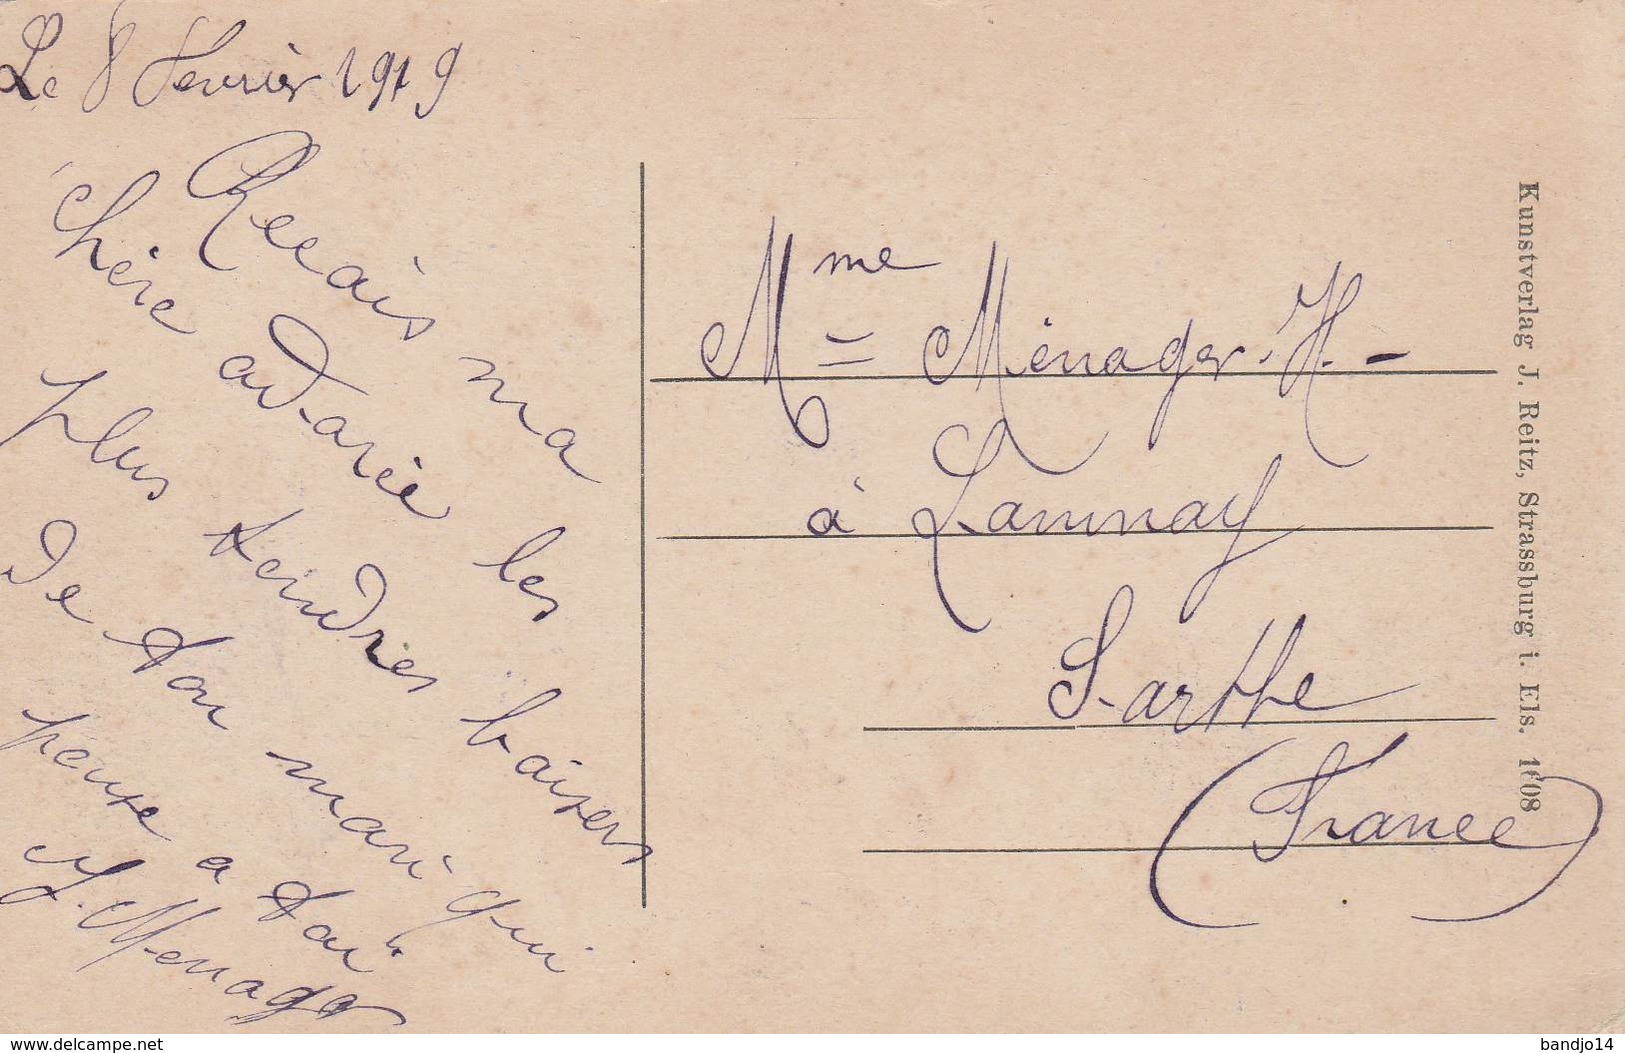 Le 8 Fevrièr 1919
Recais ma
chère adorèe les
plus tendres baisers
de ton mari qui
pense a toi
H. Menager
Mme Mènager. H. -
à Launay
Sarthe
(France)
Kunstverlag J. Reitz, Strassburg i. Els. 1608
www.delcampe.net
bandjo14